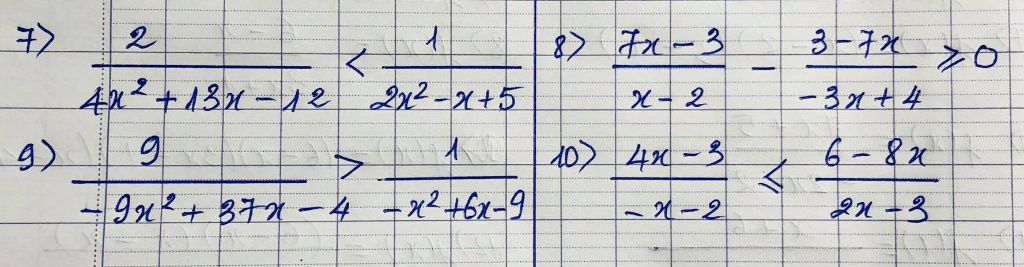 7) 2/(4x² + 13x - 12) < 1/(2x² - x + 5)
8) (7x - 3)/(x - 2) - (3 - 7x)/(-3x + 4) ⩾ 0
9) 9/(-9x² + 37x - 4) > 1/(-x² + 6x - 9)
10) (4x - 3)/(-x - 2) ⩽ (6 - 8x)/(2x - 3)